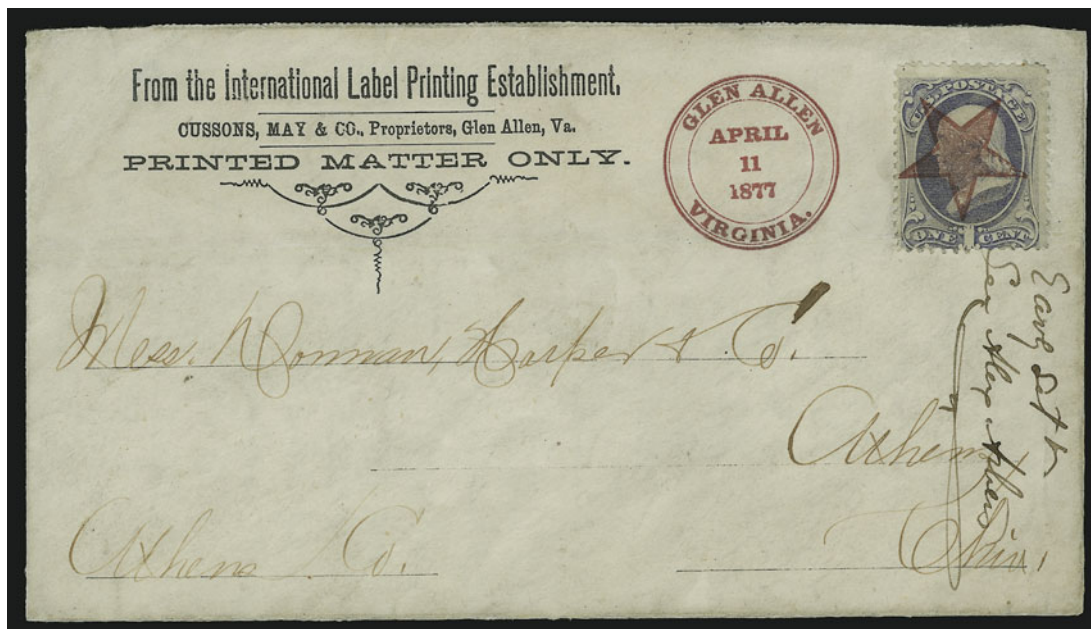 From the International Label Printing Establishment.
CUSSONS, MAY & CO., Proprietors, Glen Allen, Va.
PRINTED MATTER ONLY.
GLEN ALLEN
APRIL
11
1877
VIRGINIA.
U.S. POSTAGE
ONE 1 CENT
Mess. Norman, Harper & Co.
Athens,
Athens Co.
Ohio,